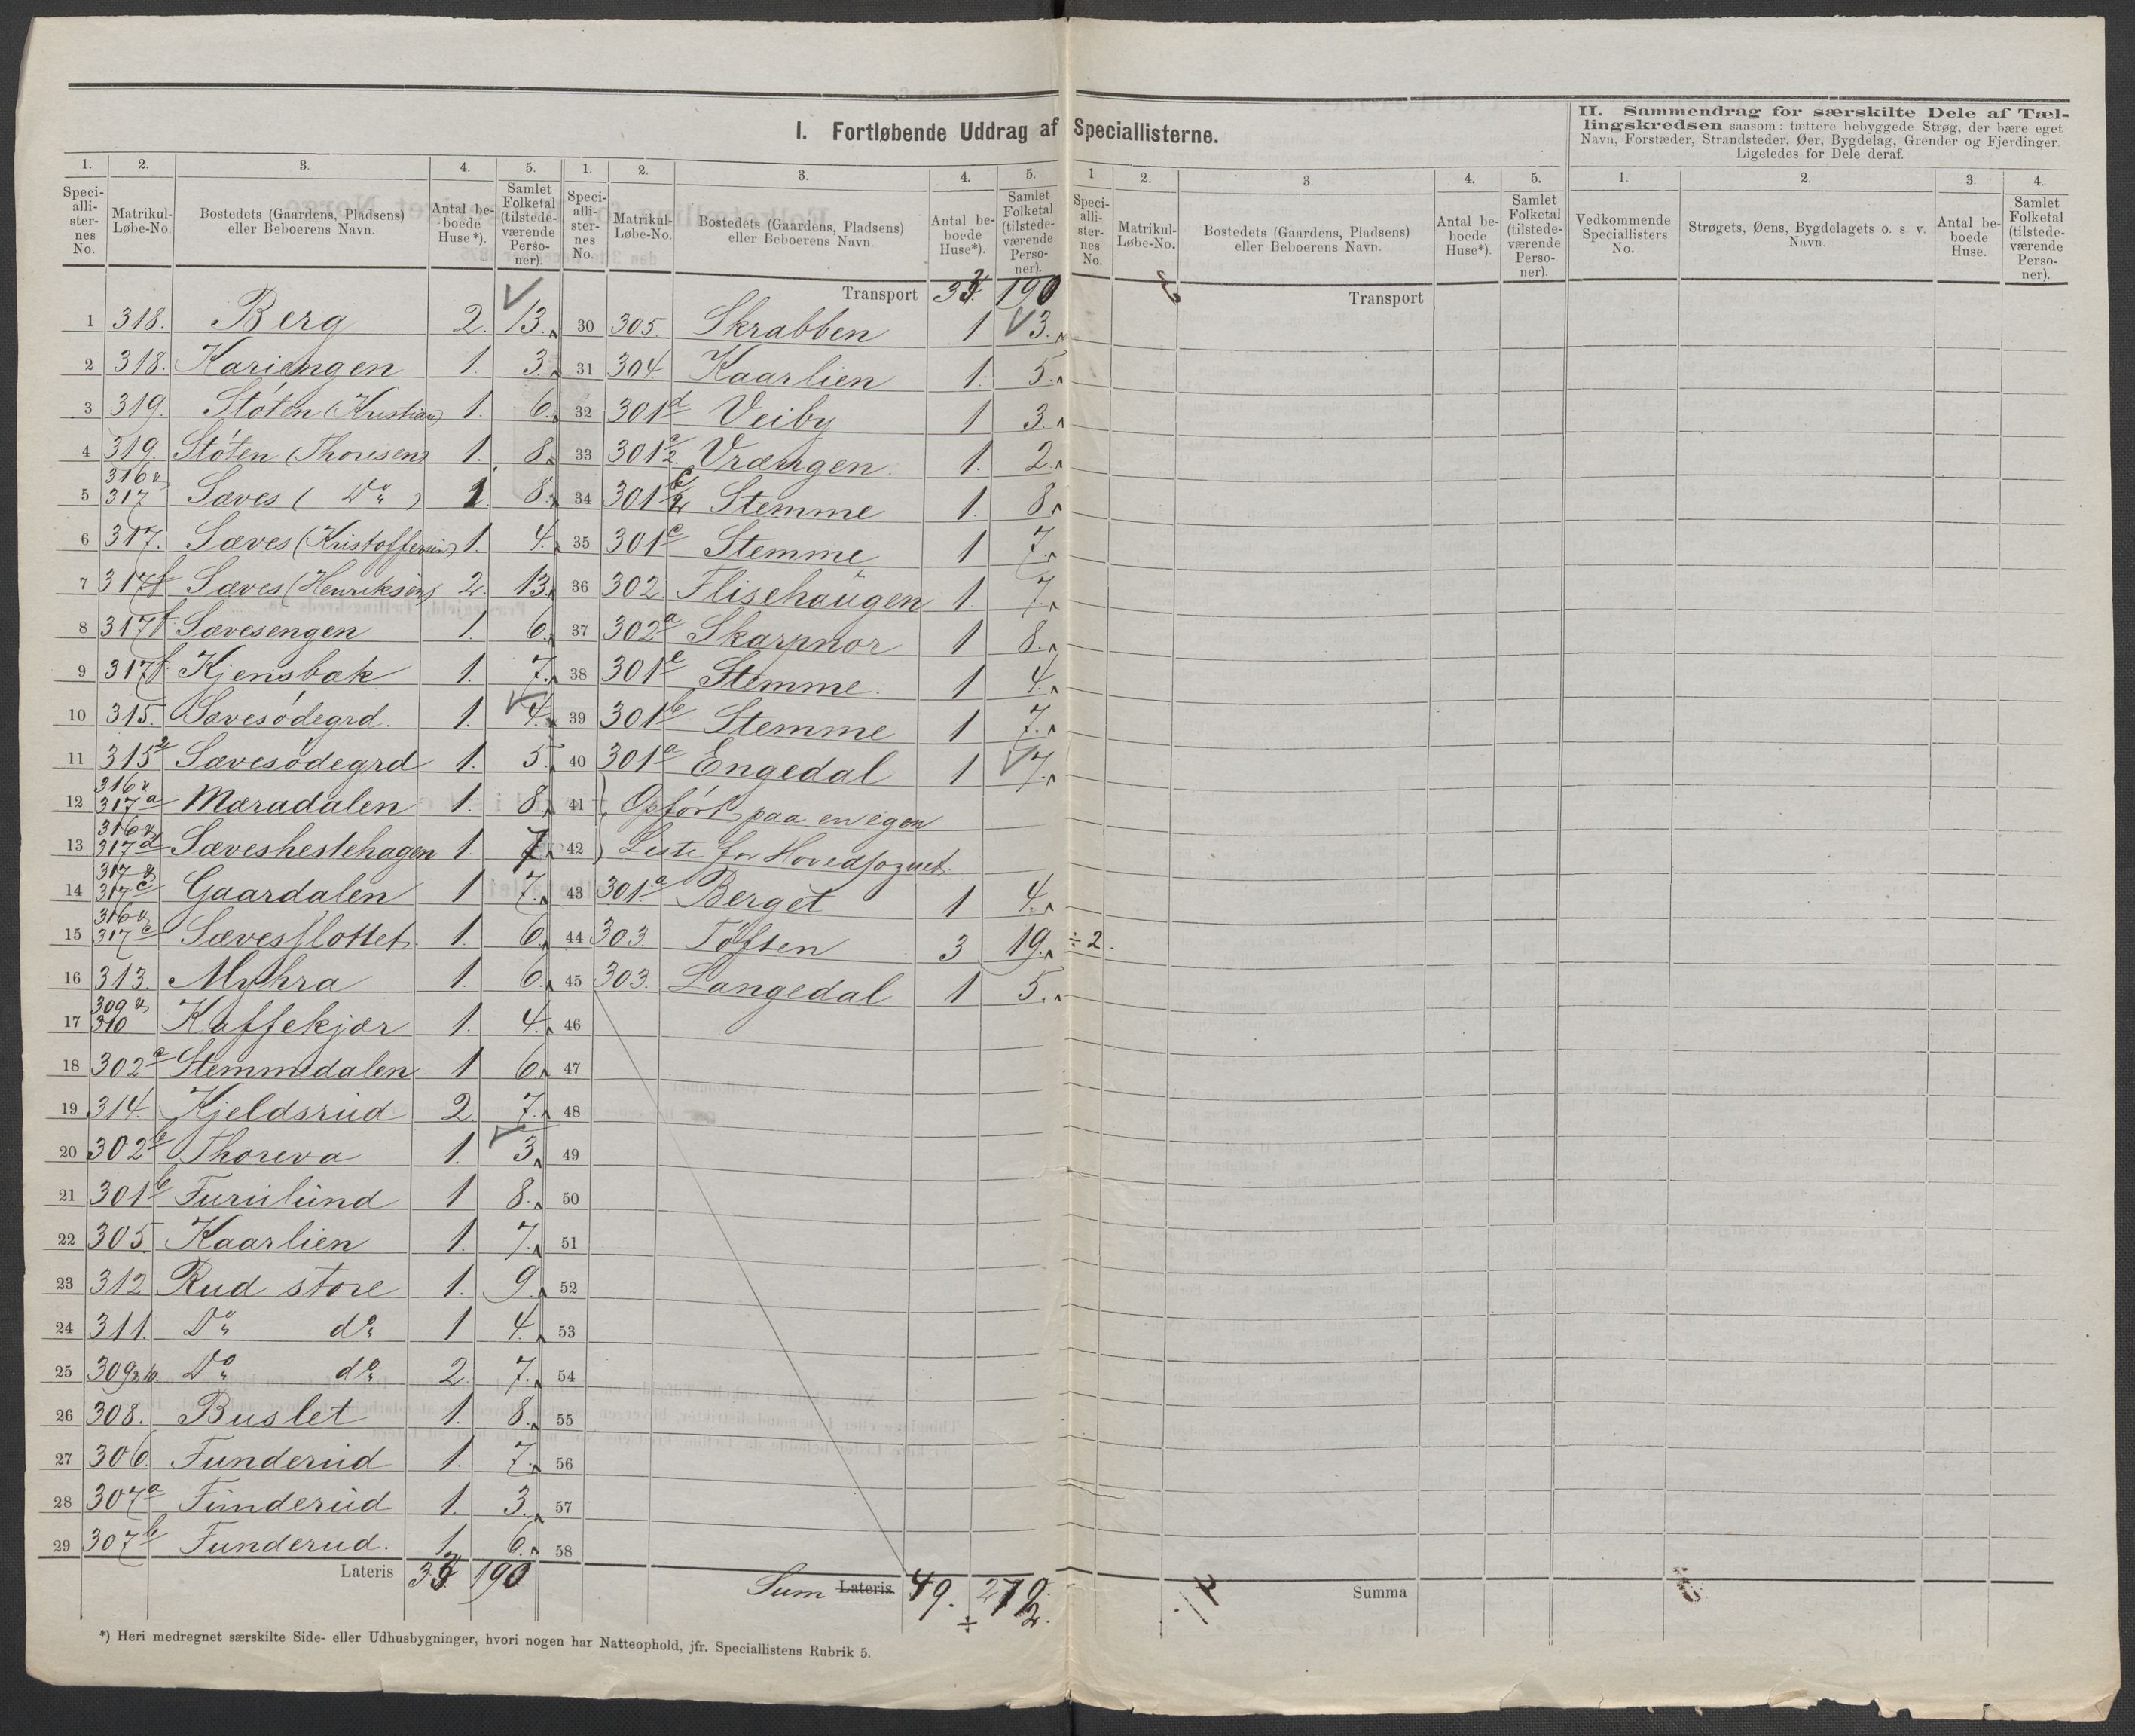 I. Fortløbende Uddrag af Speciallisterne.
II. Sammendrag for særskilte Dele af Tæl-
lingskredsen saasom: tættere bebyggede Strøg, der bære eget
Navn, Forstæder, Strandsteder, Øer, Bygdelag, Grender og Fjerdinger.
Ligeledes for Dele deraf.
1. 2. 3. 4. 5. 1. 2. 3. 4. 5. 1 2. 3. 4. 5. 1. 2. 3. 4.
Speci-alli-ster-nes No. Matrikul-Løbe-No. Bostedets (Gaardens, Pladsens) eller Beboerens Navn. Antal be-boede Huse*). Samlet Folketal (tilstede-værende Perso-ner).
Speci-alli-ster-nes No. Matrikul-Løbe-No. Bostedets (Gaardens, Pladsens) eller Beboerens Navn. Antal be-boede Huse*). Samlet Folketal (tilstede-værende Perso-ner).
Speci-alli-ster-nes No. Matrikul-Løbe-No. Bostedets (Gaardens, Pladsens) eller Beboerens Navn. Antal be-boede Huse*). Samlet Folketal (tilstede-værende Perso-ner).
Vedkommende Speciallisters No. Strøgets, Øens, Bygdelagets o. s. v. Navn. Antal be-boede Huse. Samlet Folketal (tilstede-værende Perso-ner).
1 318. Berg 2. 13.
2 318. Kariengen 1. 3.
3 319. Støten (Kristian) 1. 6.
4 319. Støten (Thoresen) 1. 8.
5 316 & 317 Sæves ( Do ) 1 8.
6 317. Sæves (Kristoffersen) 1. 4.
7 317f Sæves (Henriksen) 2. 13.
8 317f Sævesengen 1. 6.
9 317f. Kjensbæk 1. 7.
10 315. Sævesødegrd. 1. 4.
11 315 Sævesødegrd 1. 5.
12 316 & 317a Mæradalen 1. 8.
13 316 & 317d Sæveshestehagen 1. 7.
14 317 & 317c Gaardalen 1 7.
15 316 & 317e Sævesslottet 1. 6.
16 313. Myhra 1. 6.
17 309 & 310 Kaffekjær 1. 4.
18 302c Stemmedalen 1 6.
19 314. Kjeldsrud 2. 7.
20 302b Thoreva 1. 3.
21 301b Furulund 1 8.
22 305. Kaarlien 1. 7.
23 312 Rud store 1. 9.
24 311. Do do 1 4.
25 309 Do do 2. 7.
26 308. Buslet 1. 8.
27 306 Funderud 1. 7.
28 307a Funderud 1. 3.
29 307b Funderud. 1. 6.
Lateris 190
Transport 190
30 305. Skrabben 1 3.
31 304 Kaarlien 1. 5.
32 301d Veiby 1 3.
33 301 Vrængen. 1. 2.
34 301 Stemme 1. 8.
35 301c Stemme 1 7.
36 302 Flisehaugen 1. 7.
37 302a Skarpnor 1 8.
38 301e Stemme. 1 4.
39 301b Stemme 1 7.
40 301a Engedal 1 7.
41 Opført paa en egen
42 Liste for Hovedsognet.
43 301a Berget 1 4.
44 303. Toften 3 19. ÷ 2.
45 303. Langedal 1 5.
46
47
48
49
50
51
52
53
54
55
56
57
58
Sum Lateris 49.
÷ 2.
Transport
Summa
*) Heri medregnet særskilte Side- eller Udhusbygninger, hvori nogen har Natteophold, jfr. Speciallistens Rubrik 5.